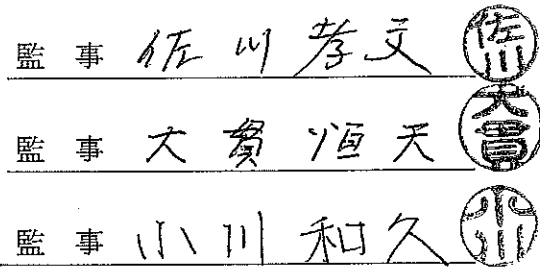 監事 佐川孝文 佐川
監事 大貫恒夫 大貫
監事 小川和久 小川